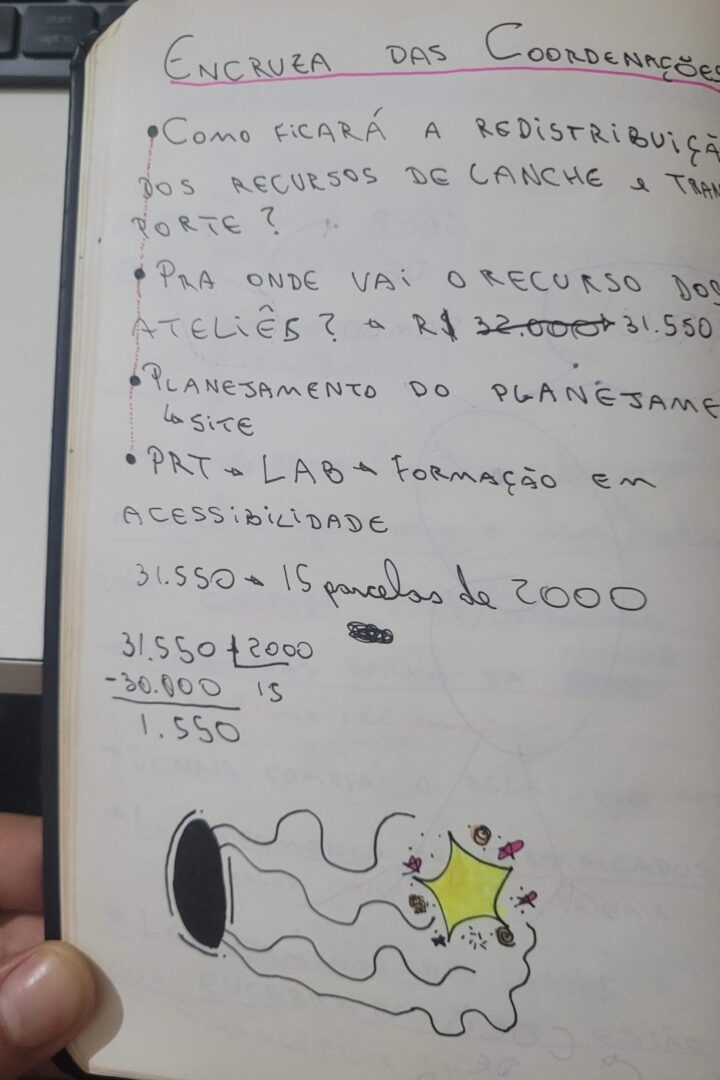 ENCRUZA DAS COORDENAÇÕES
• COMO FICARÁ A REDISTRIBUIÇÃ
DOS RECURSOS DE LANCHE e TRAN
PORTE?
• PRA ONDE VAI O RECURSO DOS
ATELIÊS? → R$ 32.000 → 31.550
• PLANEJAMENTO DO PLANEJAME
↳ SITE
• PRT → LAB → FORMAÇÃO EM
ACESSIBILIDADE
31.550 → 15 parcelas de 2000
31.550 2000
-30.000 15
1.550